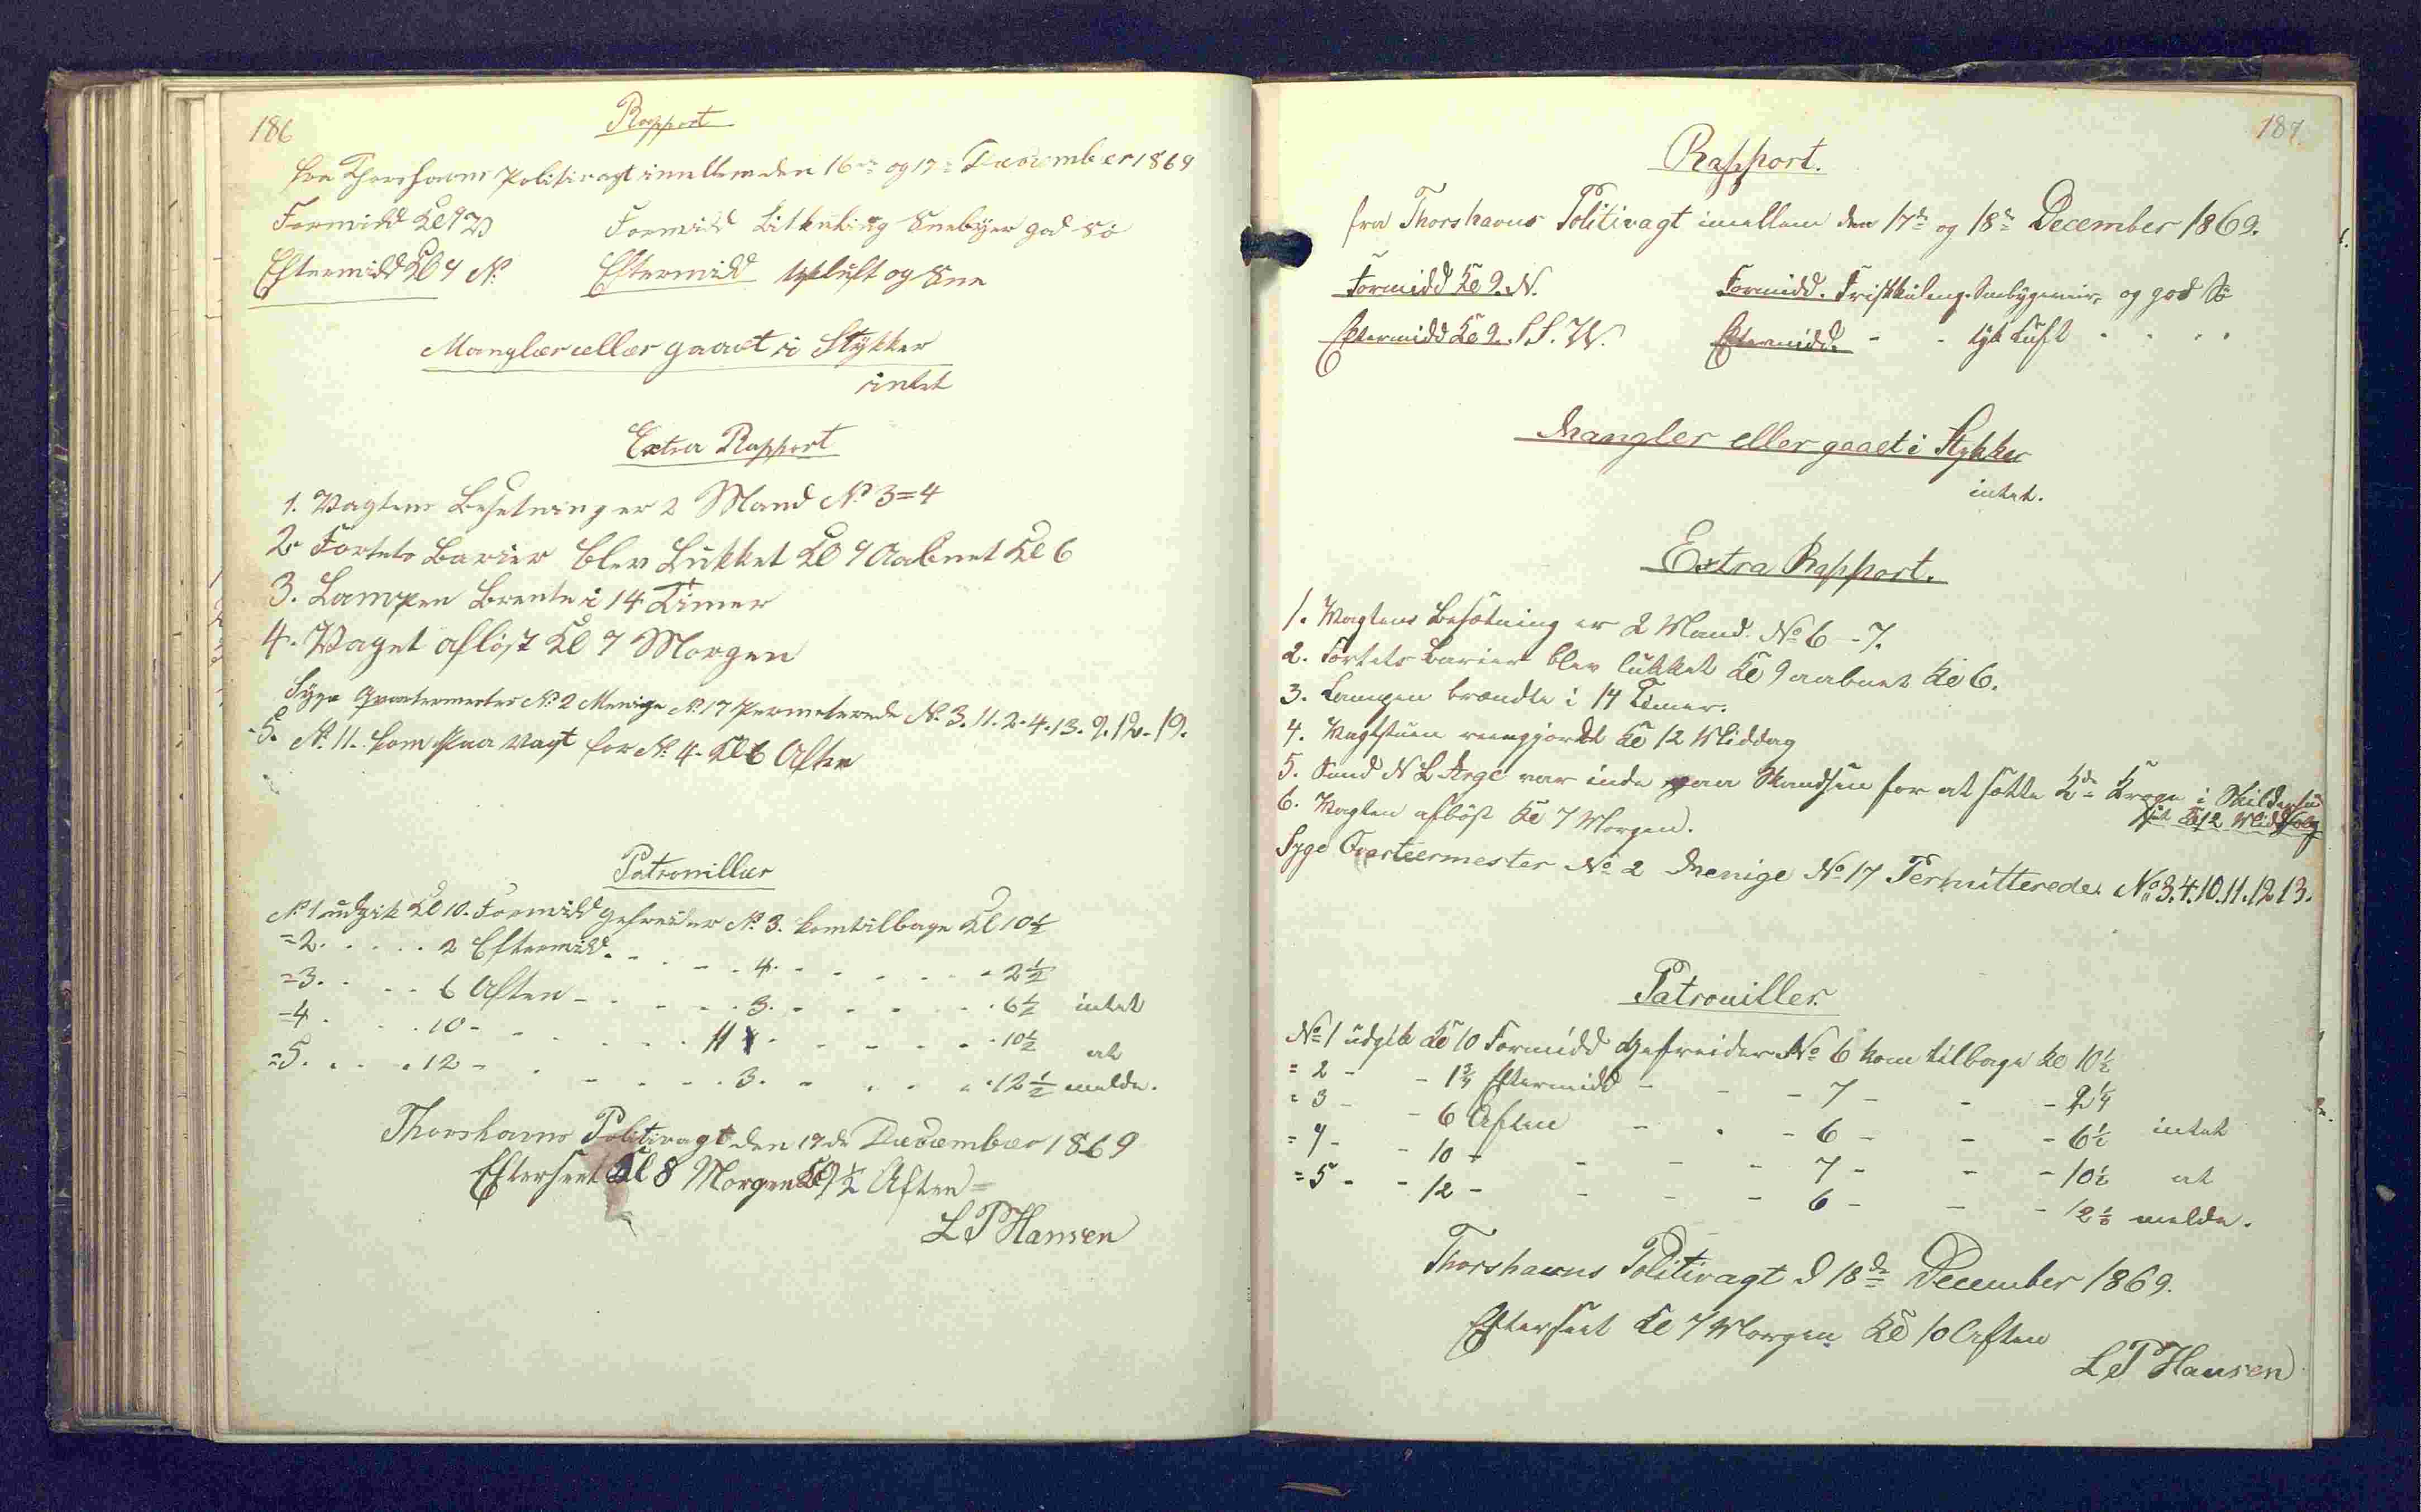 186
Rapport
fra Thorshavns Politivagt imellem den 16de og 17de December 1869
Formidd Kl 9 V Formidd Litkuling Snebyer god Sö
Eftermidd Kl 9 N. Eftermidd tykluft og Sne
Mangler eller gaaet i Stykker
intet
Extra Rapport
1. Vagtens Besetning er 2 Mand No 3=4
2. Fortets Barier blev Lukket Kl 9 Aabnet Kl 6
3. Lampen Brente i 14 Timer
4. Vaget aflöst Kl 7 Morgen
Syge Qvartermester No 2 Menige No 17 Permeterede No. 3. 11. 2. 4. 13. 9. 12. 19.
5. No. 11. kom paa Vagt for No. 4. Kl 6 Aften
Patrouiller
No 1 udgik Kl 10. Formidd Gefreider No 3. kom tilbage Kl 10½
=2. . . . . 2 Eftermidd. - - - - 4. - - - - - 2½
=3. . . . 6 Aften - - - - 3. - - - - - 6½ intet
=4 . . . 10 - - - - - 11 - - - - - 10½ at
=5. . . . 12 - - - - - 3. - - - - 12½ melde.
Thorshavns Politivagt den 17de December 1869
Efterseet Kl 8 Morgen Kl 9½ Aften
L P Hansen
187.
Rapport.
fra Thorshavns Politivagt imellem den 17de og 18de December 1869.
Formidd Kl 9. N. Formidd. Friskkuling. Snebygeveir, og god Sö
Eftermidd Kl 9. S.S.W. Eftermidd. - - tyk Luft - - - -
Mangler eller gaaet i Stykker
intet.
Extra Rapport.
1. Vagtens Besætning er 2 Mand. No 6 - 7.
2. Fortets Barier blev lukket Kl 9 aabnet Kl 6.
3. Lampen brændte i 14 Timer.
4. Vagtstuen reengjordt Kl 12 Middag
5. Smed N L Arge var inde paa Skandsen for at sætte Kroge i
Kl 12 Middag
6. Vagten aflöst Kl 7 Morgen.
Syge Qvarteermester No 2 Menige No 17 Permitterede. No 3. 4. 10. 11. 12. 13.
Patrouiller.
No 1 udgik Kl 10 Formidd Gefreider No 6 kom tilbage Kl 10½
= 2 - - 1¾ Eftermidd - - - 7 - - - 2¼
= 3 - - 6 Aften - - - 6 - - - 6½ intet
= 4 - - 10 - - - - 7 - - - 10½ at
= 5 - - 12 - - - - 6 - - - 12½ melde.
Thorshavns Politivagt d 18de December 1869.
Efterseet Kl 7 Morgen Kl 10 Aften
L P Hansen